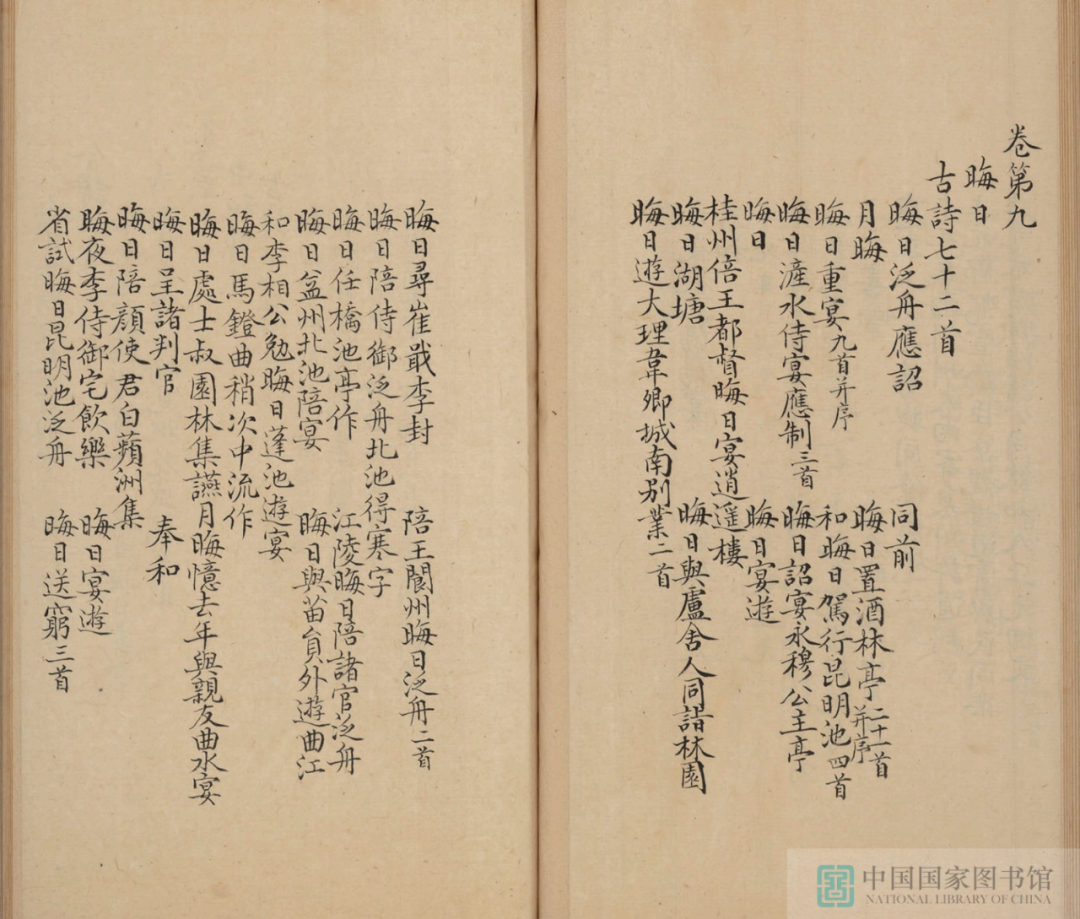 卷第九
晦日
古詩七十二首
晦日泛舟應詔　同前
月晦　晦日置酒林亭二十一首并序
晦日重宴九首并序　和晦日駕行昆明池四首
晦日滻水侍宴應制三首　晦日詔宴永穆公主亭
晦日　晦日宴遊
桂州倍王都督晦日宴逍遥樓
晦日湖塘　晦日與盧舍人同詣林園
晦日遊大理韋卿城南别業二首
晦日尋崔戢李封　陪王閬州晦日泛舟二首
晦日陪侍御泛舟北池得寒字
晦日任橋池亭作　江陵晦日陪諸官泛舟
晦日益州北池陪宴　晦日與苗員外遊曲江
和李相公勉晦日蓬池遊宴
晦日馬鐙曲稍次中流作
晦日處士叔園林集讌　月晦憶去年與親友曲水宴
晦日呈諸判官　奉和
晦日陪顏使君白蘋洲集
晦夜李侍御宅飲樂　晦日宴遊
省試晦日昆明池泛舟　晦日送窮三首
中国国家图书馆
NATIONAL LIBRARY OF CHINA